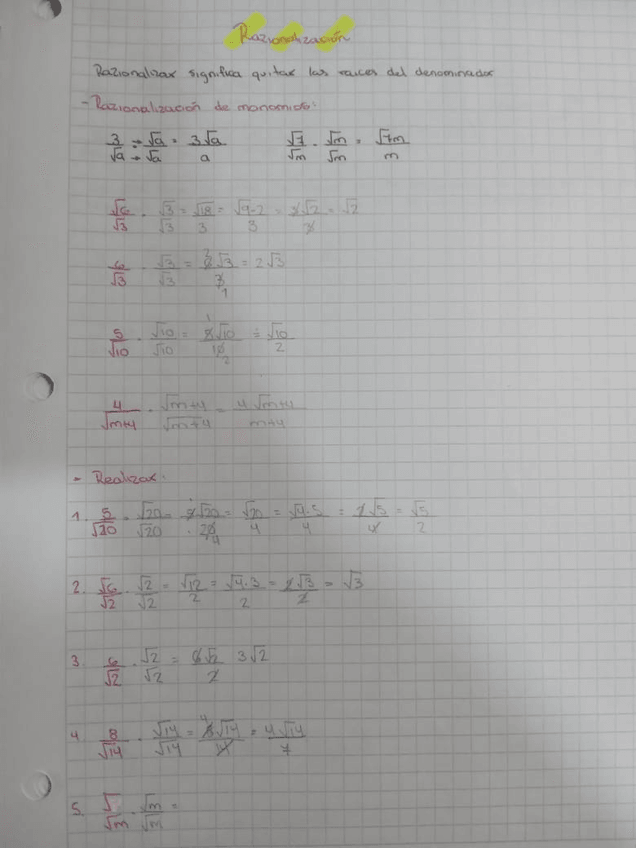 Razionalización
Razionalizar significa quitar las raices del denominador
- Razionalización de monomios:
3/√a · √a/√a = 3√a/a    √7/√m · √m/√m = √7m/m
√6/√3 · √3/√3 = √18/3 = √9·2/3 = 3√2/3 = √2
6/√3 · √3/√3 = 6√3/3 = 2√3
5/√10 · √10/√10 = 5√10/10 = √10/2
4/√m+4 · √m+4/√m+4 = 4√m+4/m+4
- Realizar:
1. 5/√20 · √20/√20 = 5√20/20 = √20/4 = √4·5/4 = 2√5/4 = √5/2
2. √6/√2 · √2/√2 = √12/2 = √4·3/2 = 2√3/2 = √3
3. 6/√2 · √2/√2 = 6√2/2 3√2
4 8/√14 · √14/√14 = 8√14/14 = 4√14/7
5. √/√m · √m/√m =